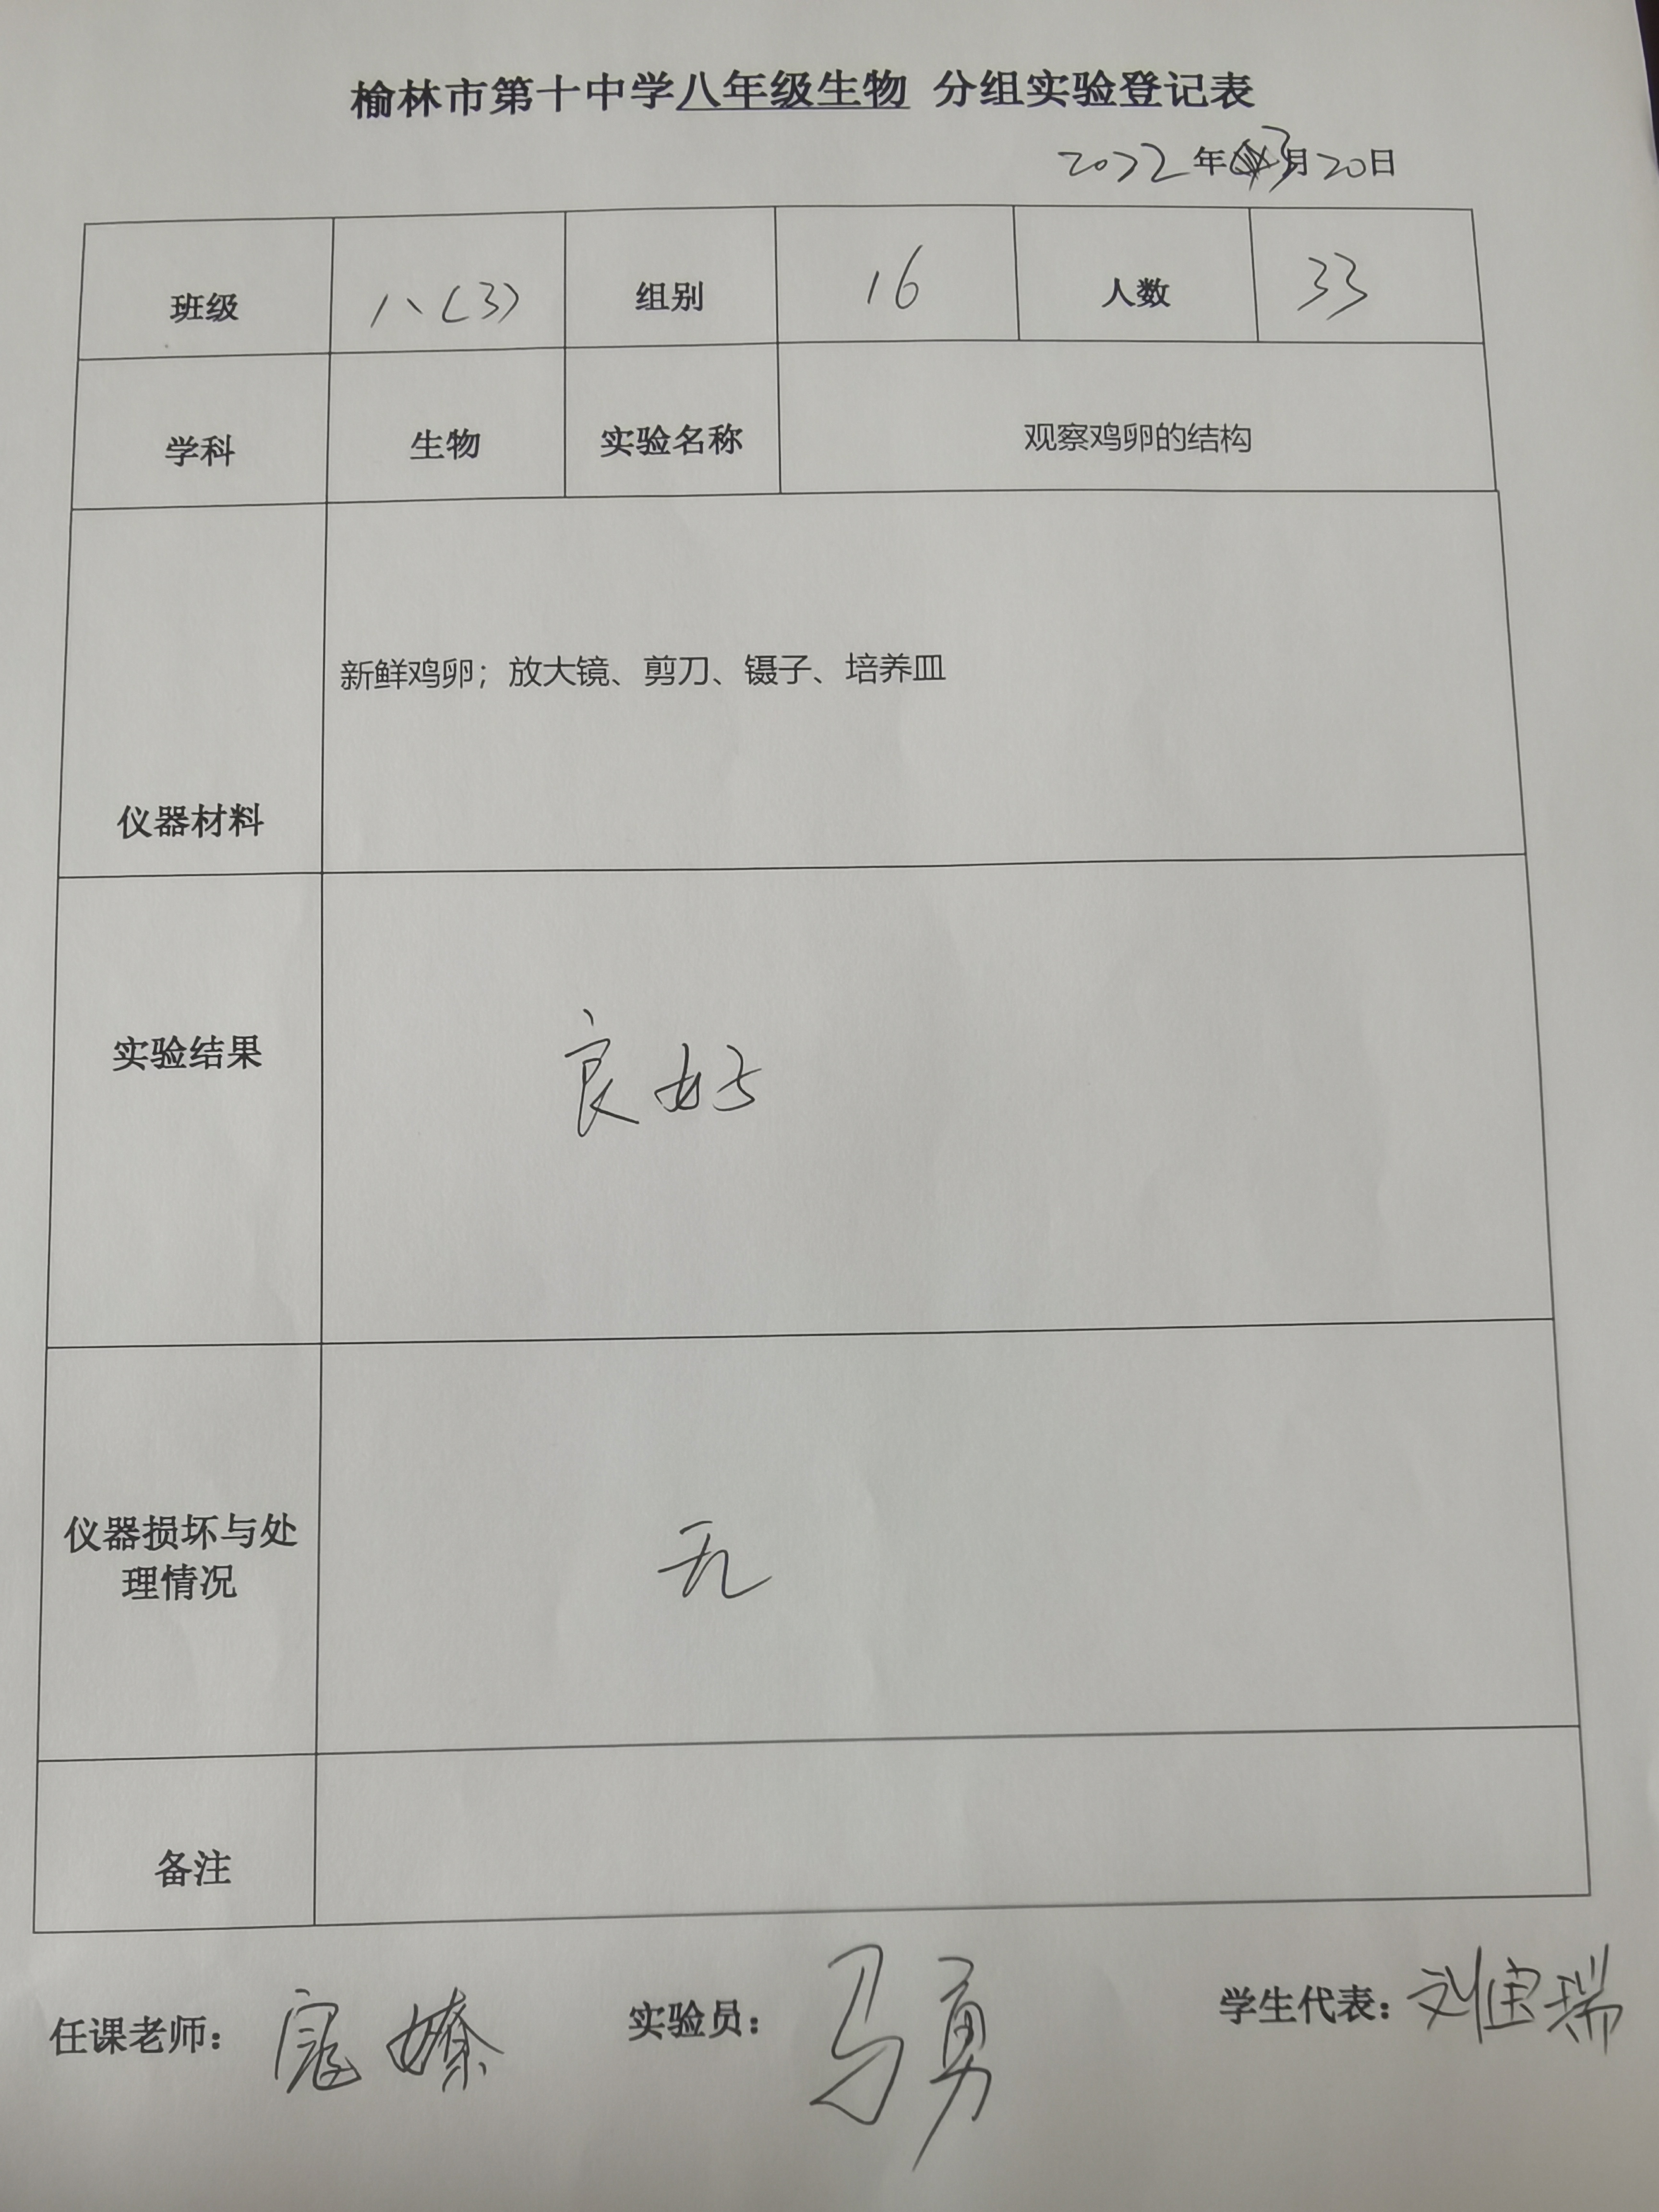 榆林市第十中学八年级生物 分组实验登记表
2022年3月20日
班级 八(3) 组别 16 人数 33
学科 生物 实验名称 观察鸡卵的结构
新鲜鸡卵；放大镜、剪刀、镊子、培养皿
仪器材料
实验结果 良好
仪器损坏与处
理情况 无
备注
任课老师： 寇 实验员： 马勇 学生代表： 刘宝瑞